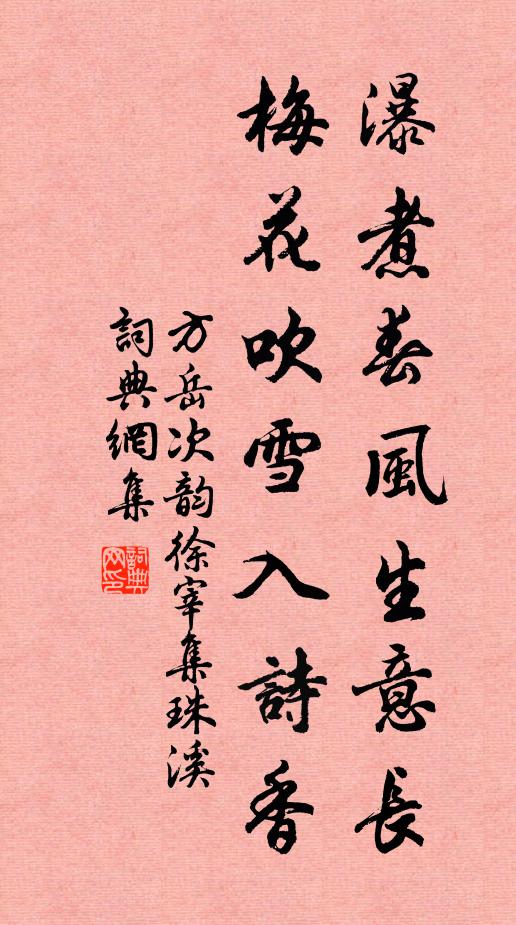 瀑煮春風生意長
梅花吹雪入詩香
方岳次韵徐宰集珠溪
詞典網集
詞典
网印